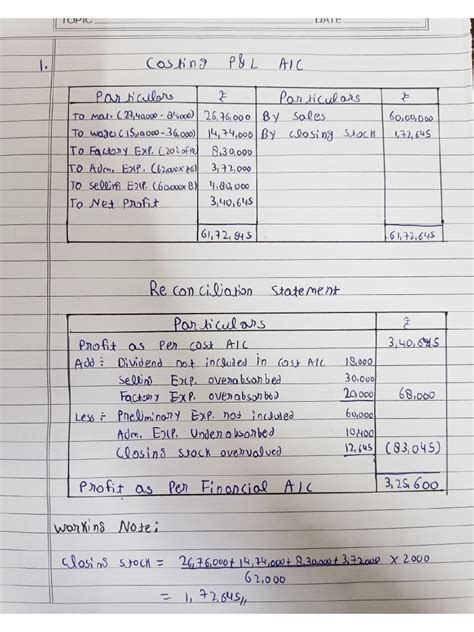 TOPIC DATE
1. Costing P&L A/C
Particulars ₹ Particulars ₹
To mat. (27,40,000 - 64,000) 26,76,000 By sales 60,00,000
To wages (15,10,000 - 36,000) 14,74,000 By closing stock 1,72,645
To Factory Exp. (20% of PC) 8,30,000
To Adm. Exp. (62,000x6) 3,72,000
To selling Exp. (60,000x8) 4,80,000
To Net Profit 3,40,645
61,72,645 61,72,645
Reconciliation Statement
Particulars ₹
Profit as per cost A/C 3,40,645
Add: Dividend not included in cost A/C 18,000
Selling Exp. overabsorbed 30,000
Factory Exp. overabsorbed 20,000 68,000
Less: Preliminary Exp. not included 60,000
Adm. Exp. Underabsorbed 10,400
Closing stock overvalued 12,645 (83,045)
Profit as Per Financial A/C 3,25,600
Working Note:
Closing stock = 26,76,000 + 14,74,000 + 8,30,000 + 3,72,000 x 2000
62,000
= 1,72,645